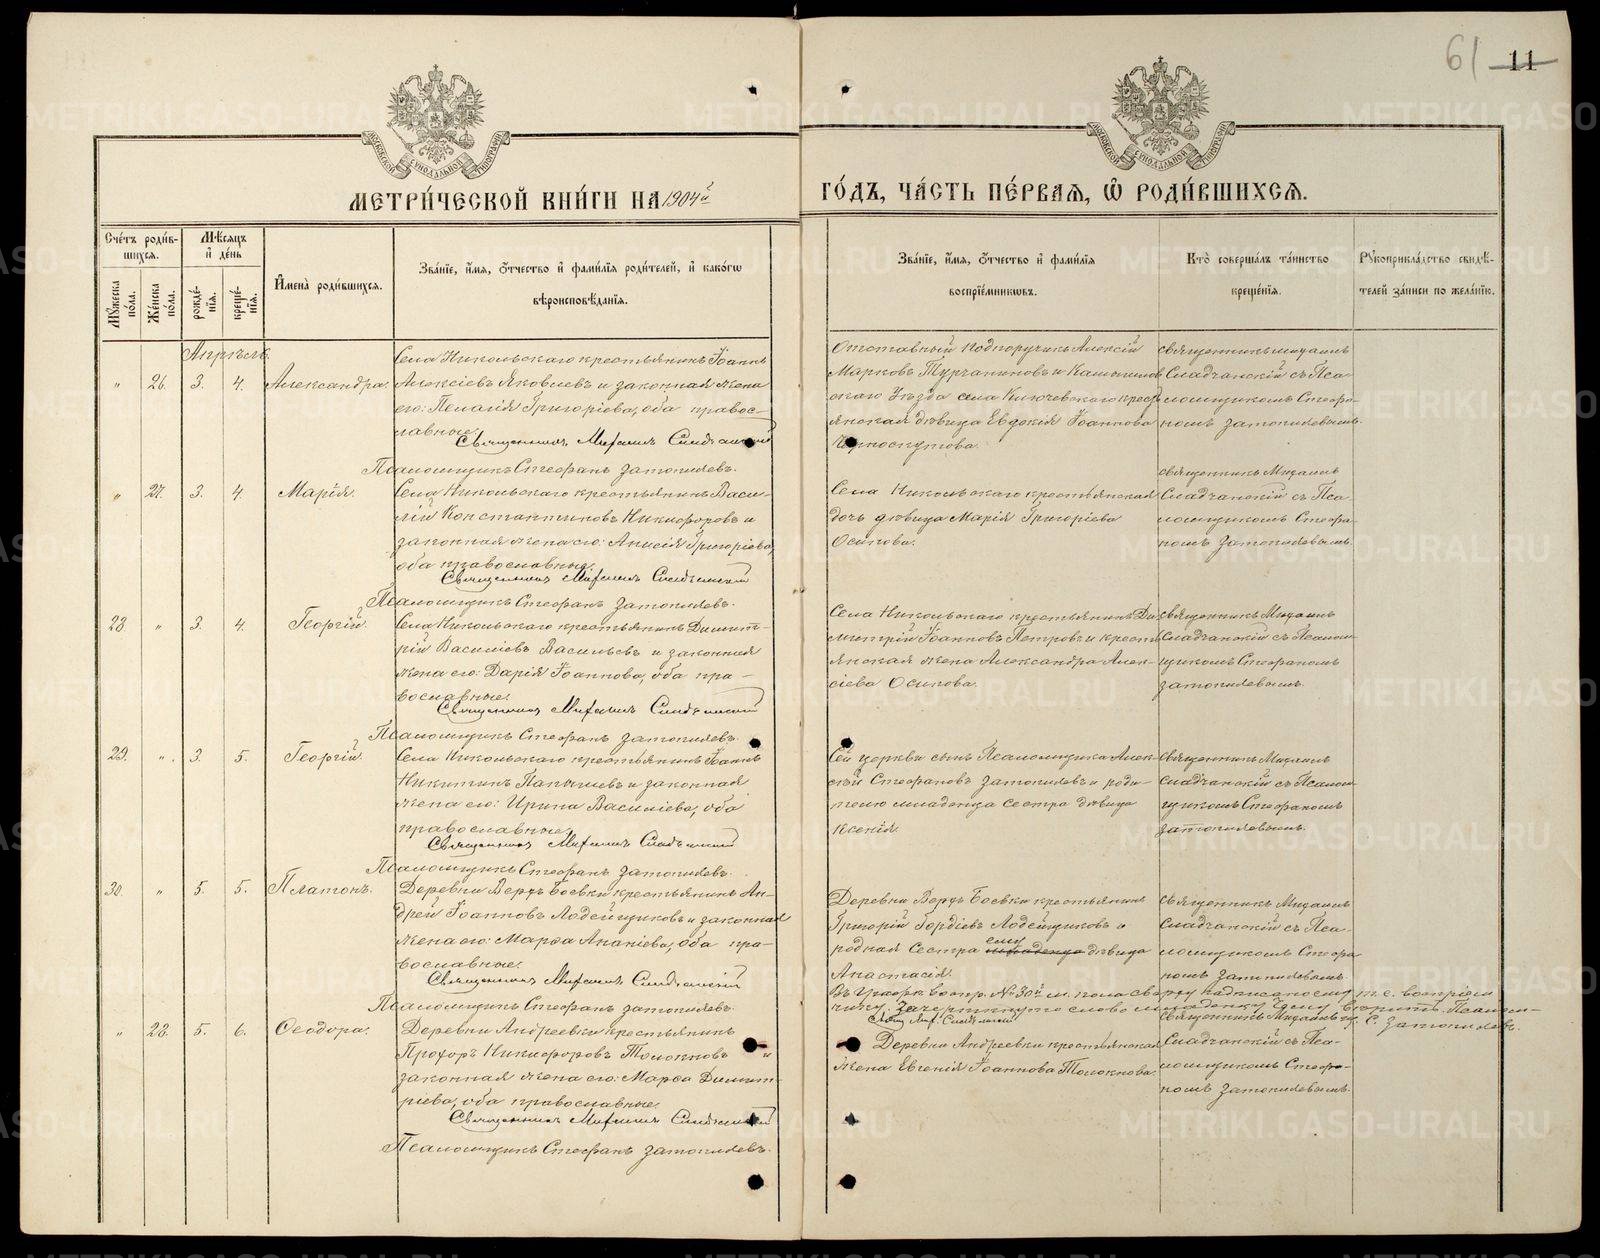 61 11
МОСКОВСКОЙ СѴНОДАЛЬНОЙ ТИПОГРАФІИ
МОСКОВСКОЙ СѴНОДАЛЬНОЙ ТИПОГРАФІИ
МЕТРИ́ЧЕСКОЙ КНИ́ГИ НА 1904й
ГО́ДЪ, ЧА́СТЬ ПЕ́РВАѦ, Ѡ҆ РОДИ́ВШИХСѦ.
Сче́тъ роди́в-
шихся.
Мꙋ́жеска пола.
Же́нска по́ла.
Мѣ́сяцъ и҆ де́нь
рожде́-нїя.
креще́-нїя.
И҆мена̀ роди́вшихся.
Зва́нїе, и҆́мя, ѻ҆́тчество и҆ фами́лїя роди́телей, и҆ како́гѡ
вѣроисповѣ́данїя.
Зва́нїе, и҆́мя, ѻ҆́тчество и҆ фами́лїя
воспрїе́мниковъ.
Кто̀ соверша́лъ та́инство
креще́нїя.
Рꙋкоприкла́дство свидѣ́-
телей за́писи по жела́нїю.
Апрѣль.
" 26. 3. 4. Александра.
Села Никольскаго крестьянинъ Іоаннъ
Алексіевъ Яковлевъ и законная жена
его: Пелагія Григоріева, оба правос-
лавные.
Священникъ Михаилъ Сладчанскій
Псаломщикъ Стефанъ Затопляевъ.
Отставный Подпоручикъ Алексій
Марковъ Турчаниновъ и Камышлов
скаго Уѣзда села Ключевскаго крест
янская дѣвица Евдокія Іоаннова
Черноскутова.
Священникъ Михаилъ
Сладчанскій съ Пса-
ломщикомъ Стефа-
номъ Затопляевымъ.
" 27. 3. 4. Марія.
Села Никольскаго крестьянинъ Васи-
лій Константиновъ Никифоровъ и
законная жена его: Анисія Григоріева,
оба православные.
Священникъ Михаилъ Сладчанскій
Псаломщикъ Стефанъ Затопляевъ.
Села Никольскаго крестьянская
дочь дѣвица Марія Григоріева
Осипова.
Священникъ Михаилъ
Сладчанскій съ Пса-
ломщикомъ Стефа-
номъ Затопляевымъ.
28 " 3. 4. Георгій.
Села Никольскаго крестьянинъ Димит-
рій Василіевъ Васильевъ и законная
жена его: Дарія Іоаннова, оба пра-
вославные.
Священникъ Михаилъ Сладчанскій
Псаломщикъ Стефанъ Затопляевъ.
Села Никольскаго крестьянинъ Ди-
митрій Іоанновъ Петровъ и кресть
янская жена Александра Алек-
сіева Осипова.
Священникъ Михаилъ
Сладчанскій съ Псалом-
щикомъ Стефаномъ
Затопляевымъ.
29. " 3. 5. Георгій.
Села Никольскаго крестьянинъ Іоаннъ
Никитинъ Папышевъ и законная
жена его: Ирина Василіева, оба
православные.
Священникъ Михаилъ Сладчанскій
Псаломщикъ Стефанъ Затопляевъ.
Сей церкви сынъ Псаломщика Алек-
сѣй Стефановъ Затопляевъ и роди
телю младенца сестра дѣвица
Ксенія.
Священникъ Михаилъ
Сладчанскій съ Псалом-
щикомъ Стефаномъ
Затопляевымъ.
30. " 5. 5. Платонъ.
Деревни Верхъ Боевки крестьянинъ Ан-
дрей Іоанновъ Лодейщиковъ и законная
жена его: Марѳа Ананіева, оба пра-
вославные.
Священникъ Михаилъ Сладчанскій
Псаломщикъ Стефанъ Затопляевъ.
Деревни Верхъ Боевки крестьянинъ
Григорій Гордіевъ Лодейщиковъ и
родная сестра ему младенца дѣвица
Анастасія.
Священникъ Михаилъ
Сладчанскій съ Пса-
ломщикомъ Стефа
номъ Затопляевымъ.
въ воспр. № 30й м. пола сверху надписано ему, т. е. воспріем
нику, зачеркнуто слово младенцу вѣрить. Псалом-
Свящ. Мих. Сладчанскій щ. С. Затопляевъ.
" 28. 5. 6. Ѳеодора.
Деревни Андреевки крестьянинъ
Прохоръ Никифоровъ Толокновъ и
законная жена его: Марѳа Димит-
ріева, оба православные.
Священникъ Михаилъ Сладчанскій
Псаломщикъ Стефанъ Затопляевъ.
Деревни Андреевки крестьянская
жена Евгенія Іоаннова Толокнова.
Священникъ Михаилъ
Сладчанскій съ Пса-
ломщикомъ Стефа-
номъ Затопляевымъ.
METRIKI.GASO-URAL.RU